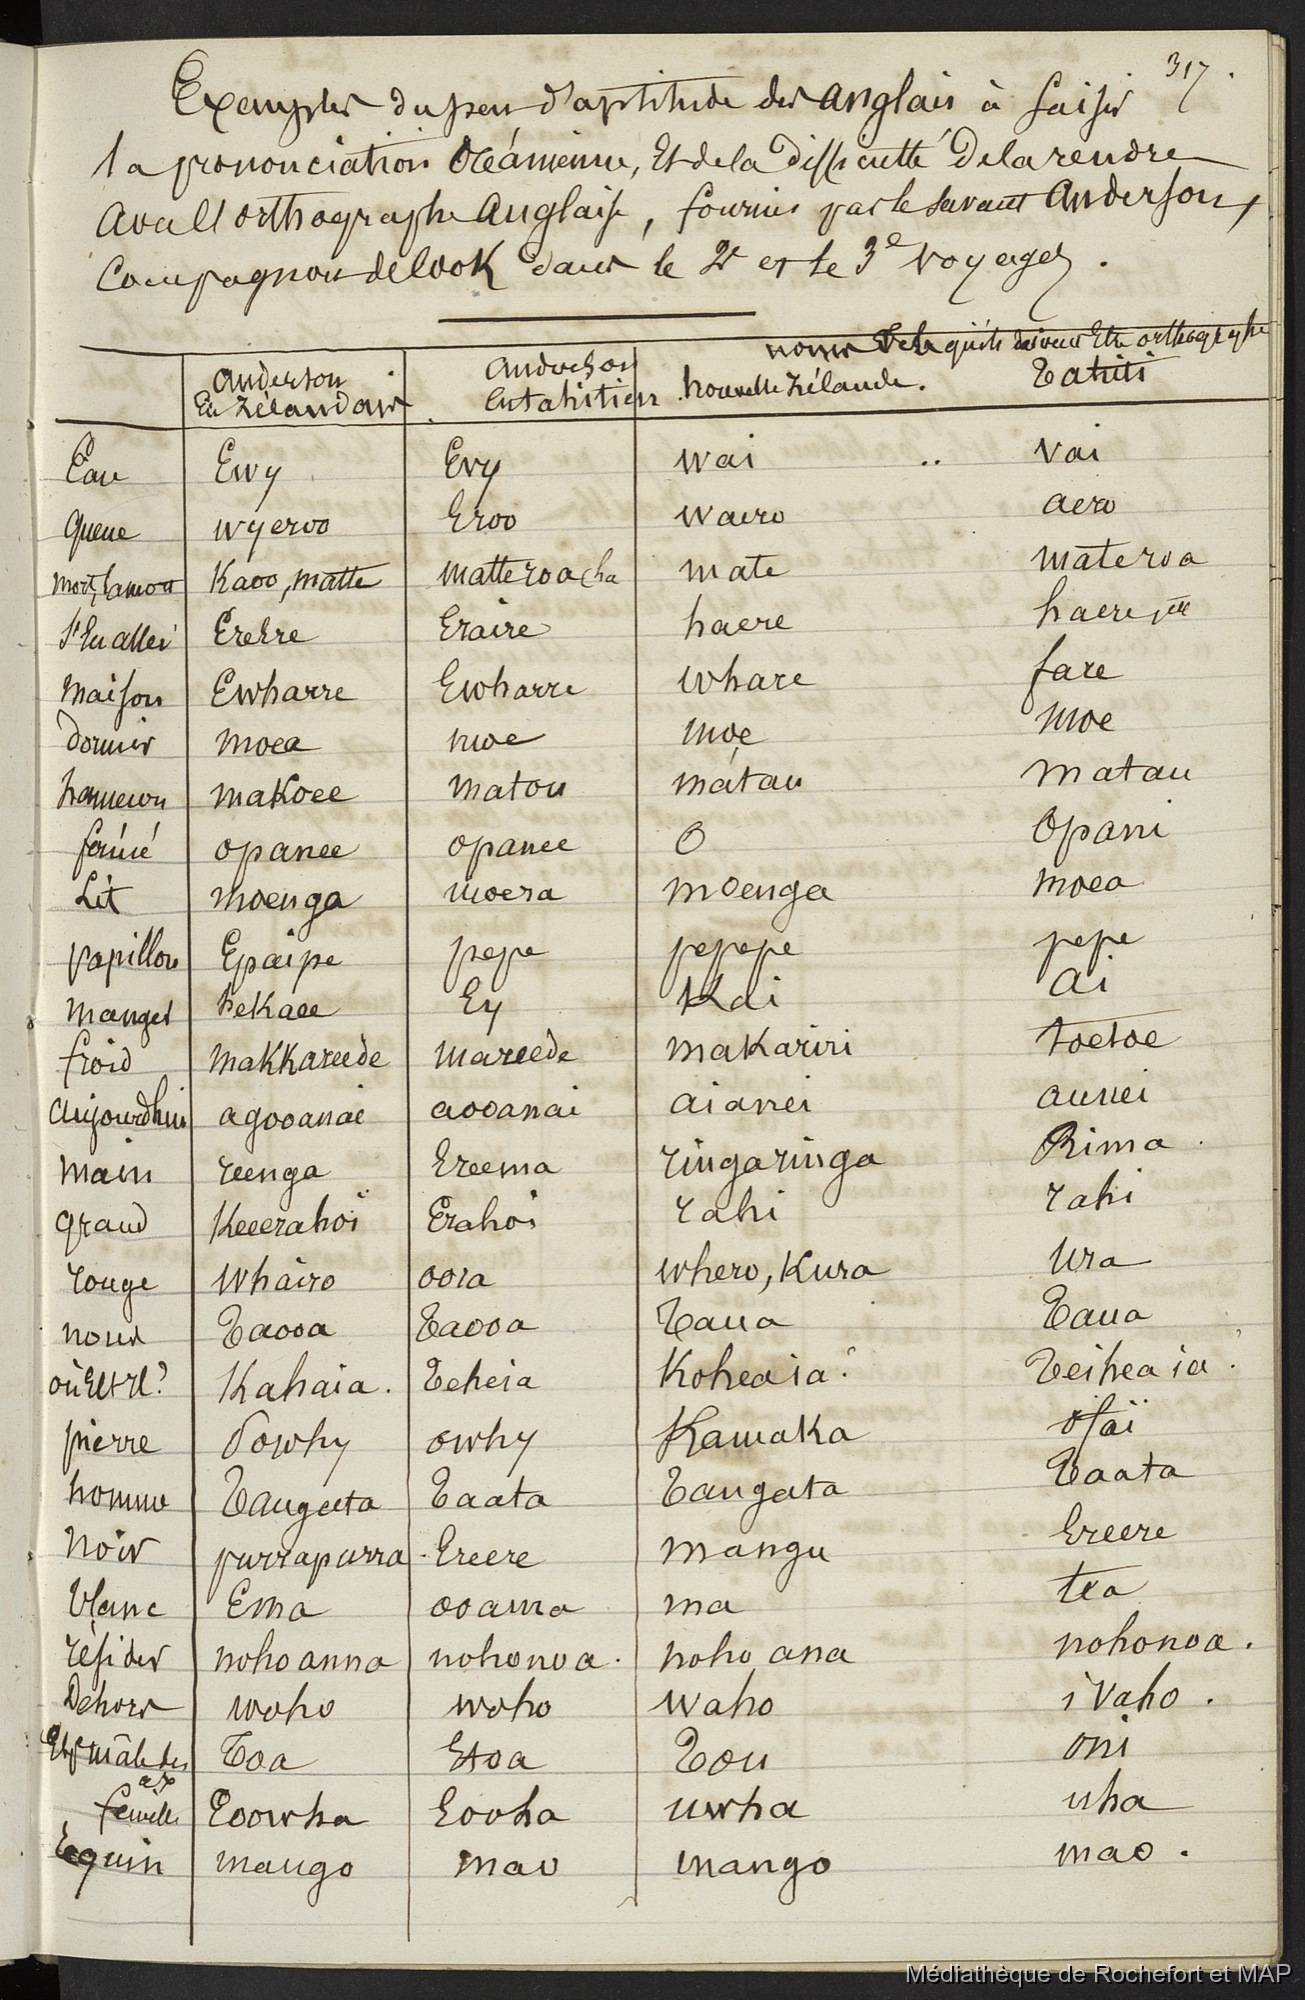 317.
Exemples du peu d'aptitude des anglais à saisir
la prononciation Océanienne, Et de la difficulté de la rendre
avec l'orthographe Anglaise, fournies par le savant Anderson,
Compagnon de Cook dans le 2e et le 3e voyages.
noms tels qu'ils doivent Etre orthographe
anderson En Zélandais anderson En tahitien nouvelle Zélande. Tahiti
Eau Ewy Evy wai .. vai
queue wyeroo Eroo waero aero
mort, Kaoo, matte matteroa mate materoa
s'En aller Ereere Eraire haere haere
maison Ewharre Ewharre whare fare
dormir moea moe moe moe
hameçon makoee matou mátau matau
fermé opanee opanee O Opani
Lit moenga moera moenga moea
papillon Epaipe pepe pepepe pepe
manger hekaee Ey Kai ai
froid makkareede mareede makariri toetoe
aujourdhui agooanai aooanai aianei aunei
main reenga Ereema ringaringa Rima.
grand Keeerahoï Erahoi rahi rahi
rouge whairo oora whero, Kura ura
nous Taooa Taooa Taua Taua
où Est-Il? Kahaia. Teheia Koheaia? Teiheaia?
pierre Powhy owhy Kamaka ofaï
homme Tangata Taata Tangata Taata
noir purrapurra. Ereere mangu Ereere
blanc Ema ooama ma tea
résider nohoanna nohonoa. noho ana nohonoa.
Dehors woho woho waho i vaho.
mâle des Toa Etoa Tou oni
femelle Eoowha Eooha uwha uha
Requin mango mao mango mao.
Médiathèque de Rochefort et MAP